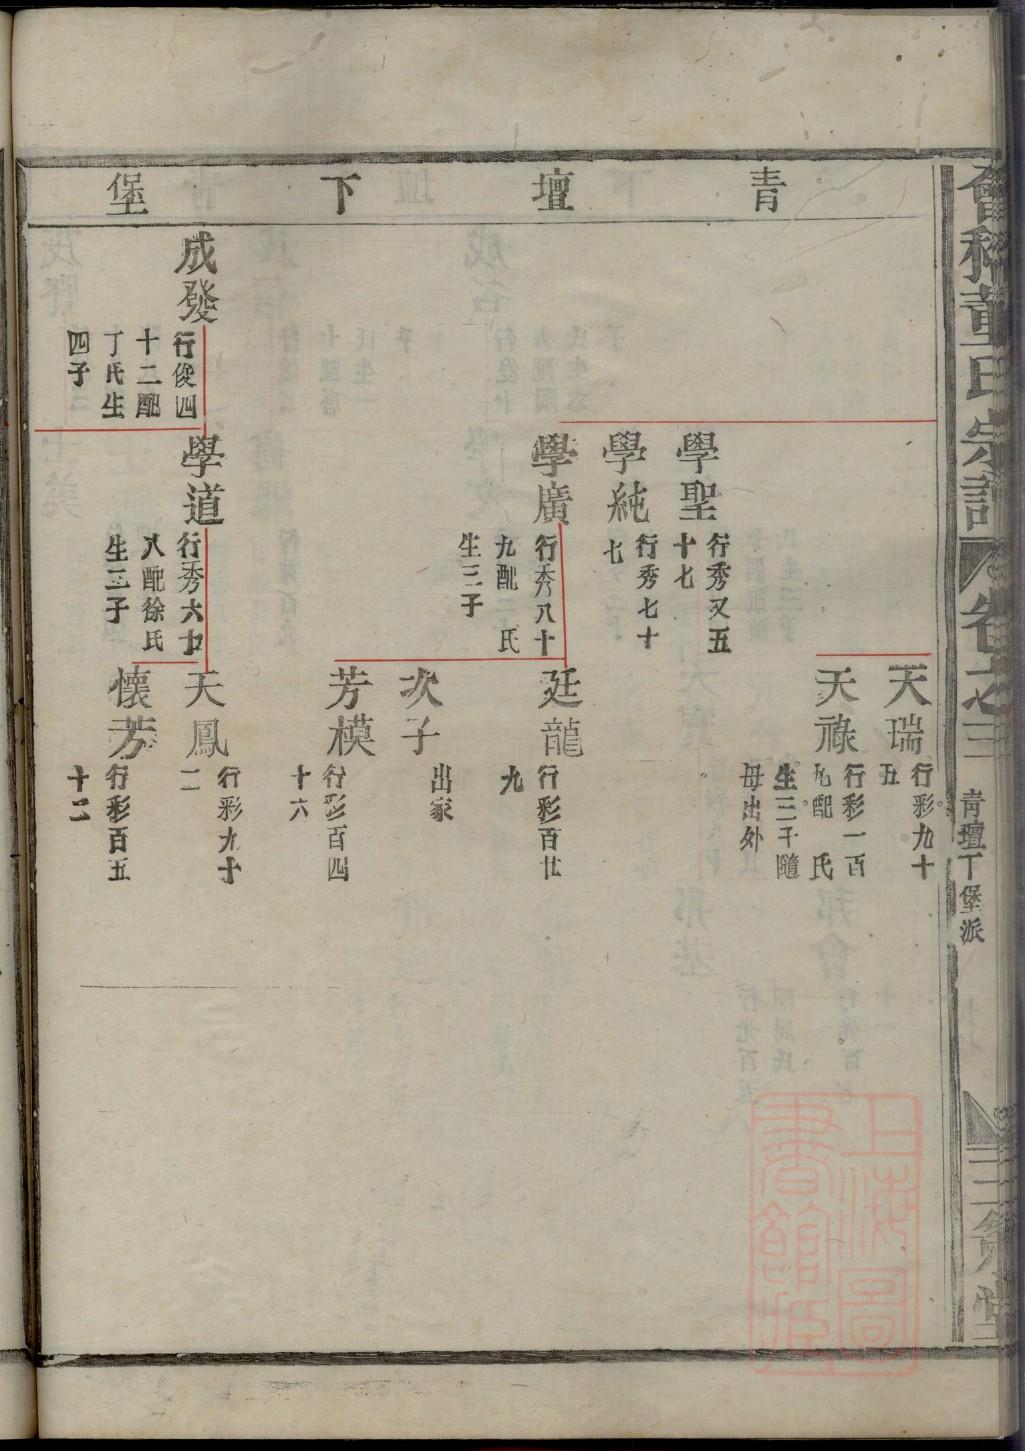 青壇下堡
天瑞
行彩九十
五
天祿
行彩一百
九配 氏
生三子隨
母出外
學聖
行秀又五
十七
學純
行秀七十
七
學廣
行秀八十
九配 氏
生三子
廷龍
行彩百廿
九
次子
出家
芳模
行彩百四
十六
成發
行俊四
十二配
丁氏生
四子
學道
行秀六十
八配徐氏
生三子
天鳳
行彩九十
二
懷芳
行彩百五
十二
會稽董氏宗譜
卷之三
青壇下堡派
三策堂
上海圖書館藏